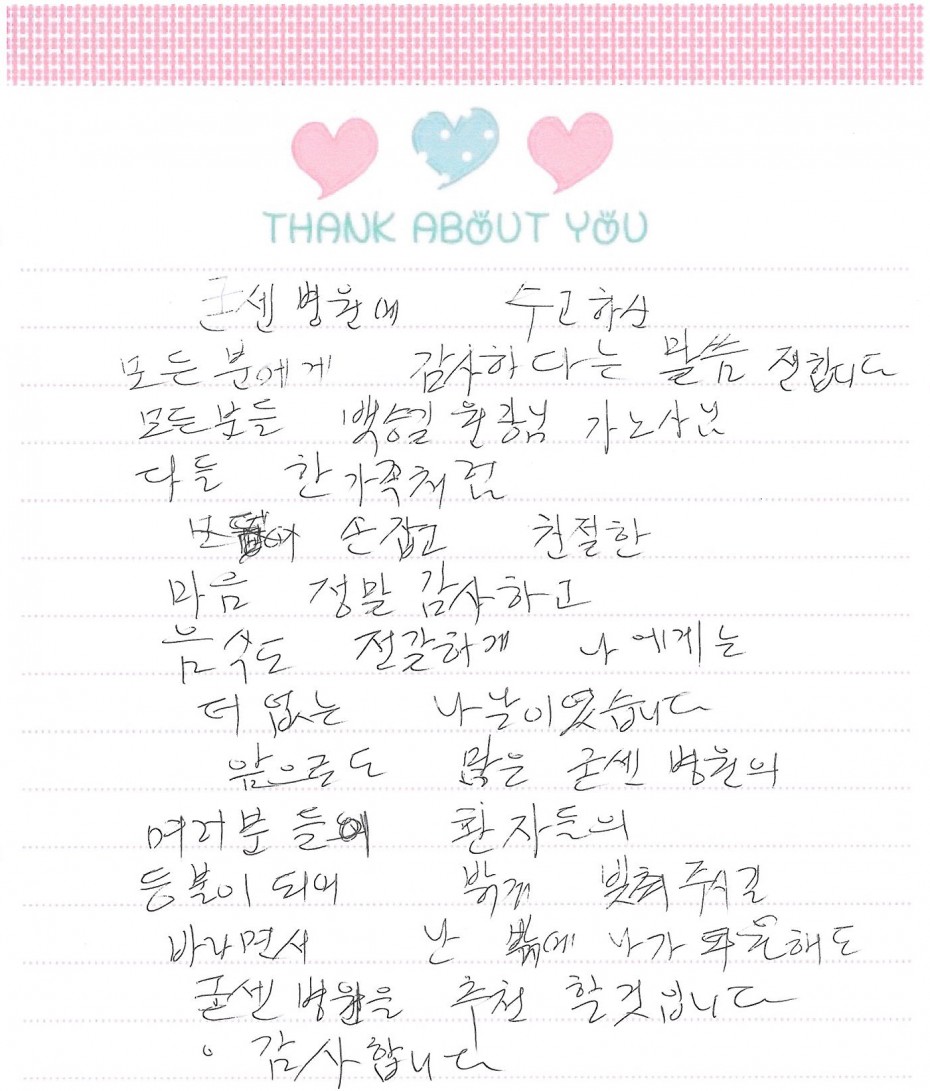 THANK ABOUT YOU
굳센 병원에 수고하신
모든 분에게 감사하다는 말씀 전합니다
모든분들 백승길 원장님 가노사님
다들 한가족처럼
손잡고 친절한
마음 정말 감사하고
음식도 전갈하게 나에게는
더 없는 나날이였습니다
앞으로도 많은 굳센 병원의
여러분 들의 환자들의
등불이 되어 밝게 빛춰 주시길
바라면서 난 밖에 나가
굳센 병원을 추천 할것입니다
감사합니다